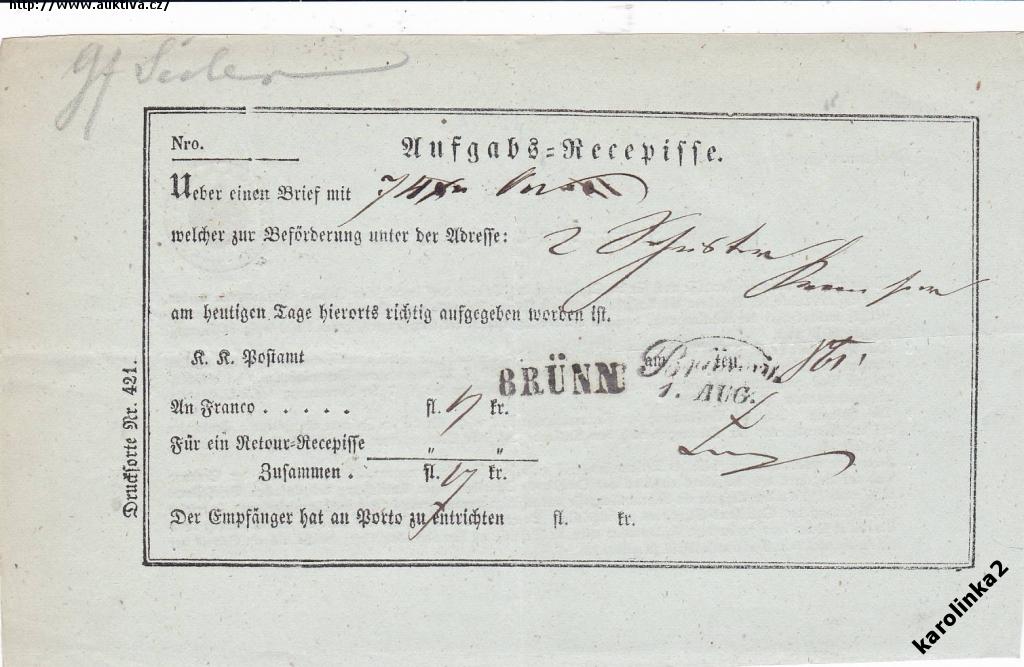 http://www.auktiva.cz/
Nro.
Aufgabs-Recepisse.
Ueber einen Brief mit
welcher zur Beförderung unter der Adresse: 2 Schuster
am heutigen Tage hierorts richtig aufgegeben worden ist.
K. K. Postamt BRÜNN am ten 861
1. AUG.
An Franco . . . . . fl. 17 kr.
Für ein Retour-Recepisse " "
Zusammen . fl. 17 kr.
Der Empfänger hat an Porto zu entrichten fl. kr.
Drucksorte Nr. 421.
karolinka2